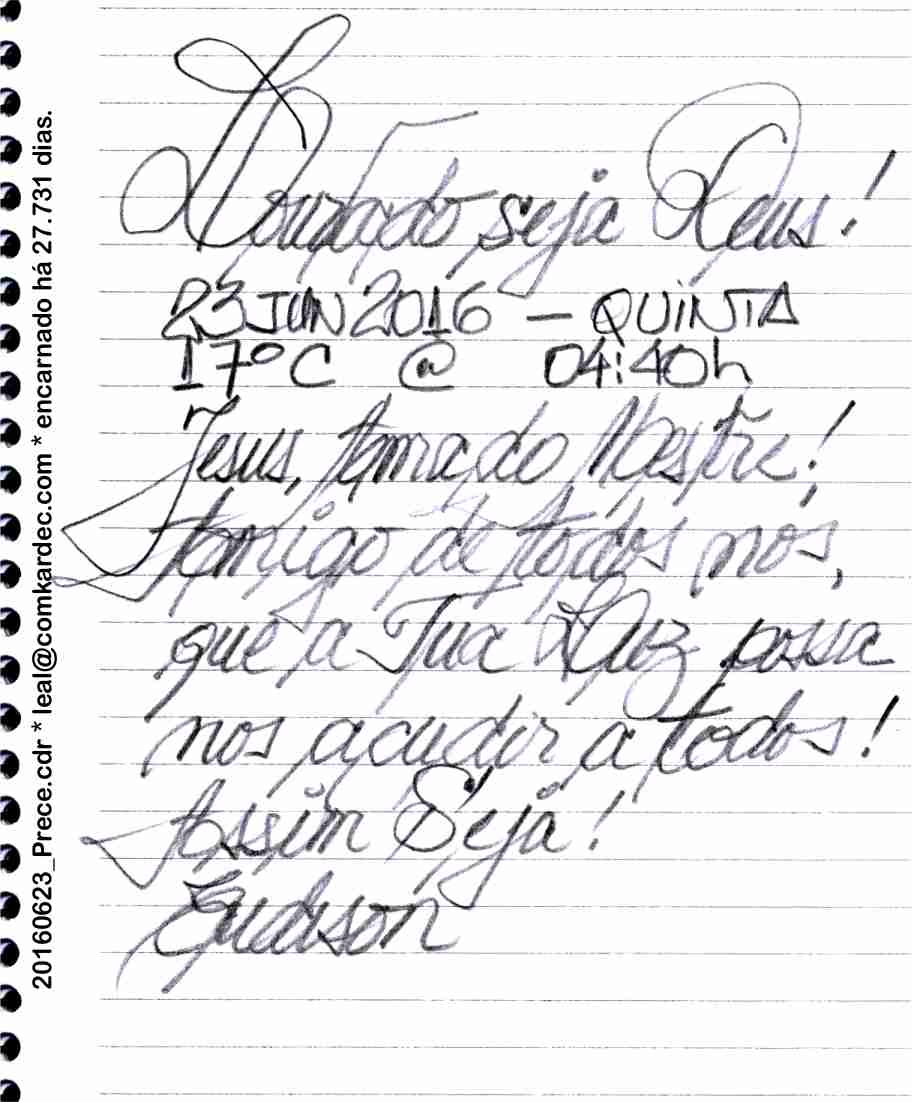 Louvado seja Deus!
23 JUN 2016 – QUINTA
17°C @ 04:40h
Jesus, Amado Mestre!
Amigo de todos nós,
que a Tua Luz possa
nos acudir a todos!
Assim Seja!
20160623_Prece.cdr * leal@comkardec.com * encarnado há 27.731 dias.